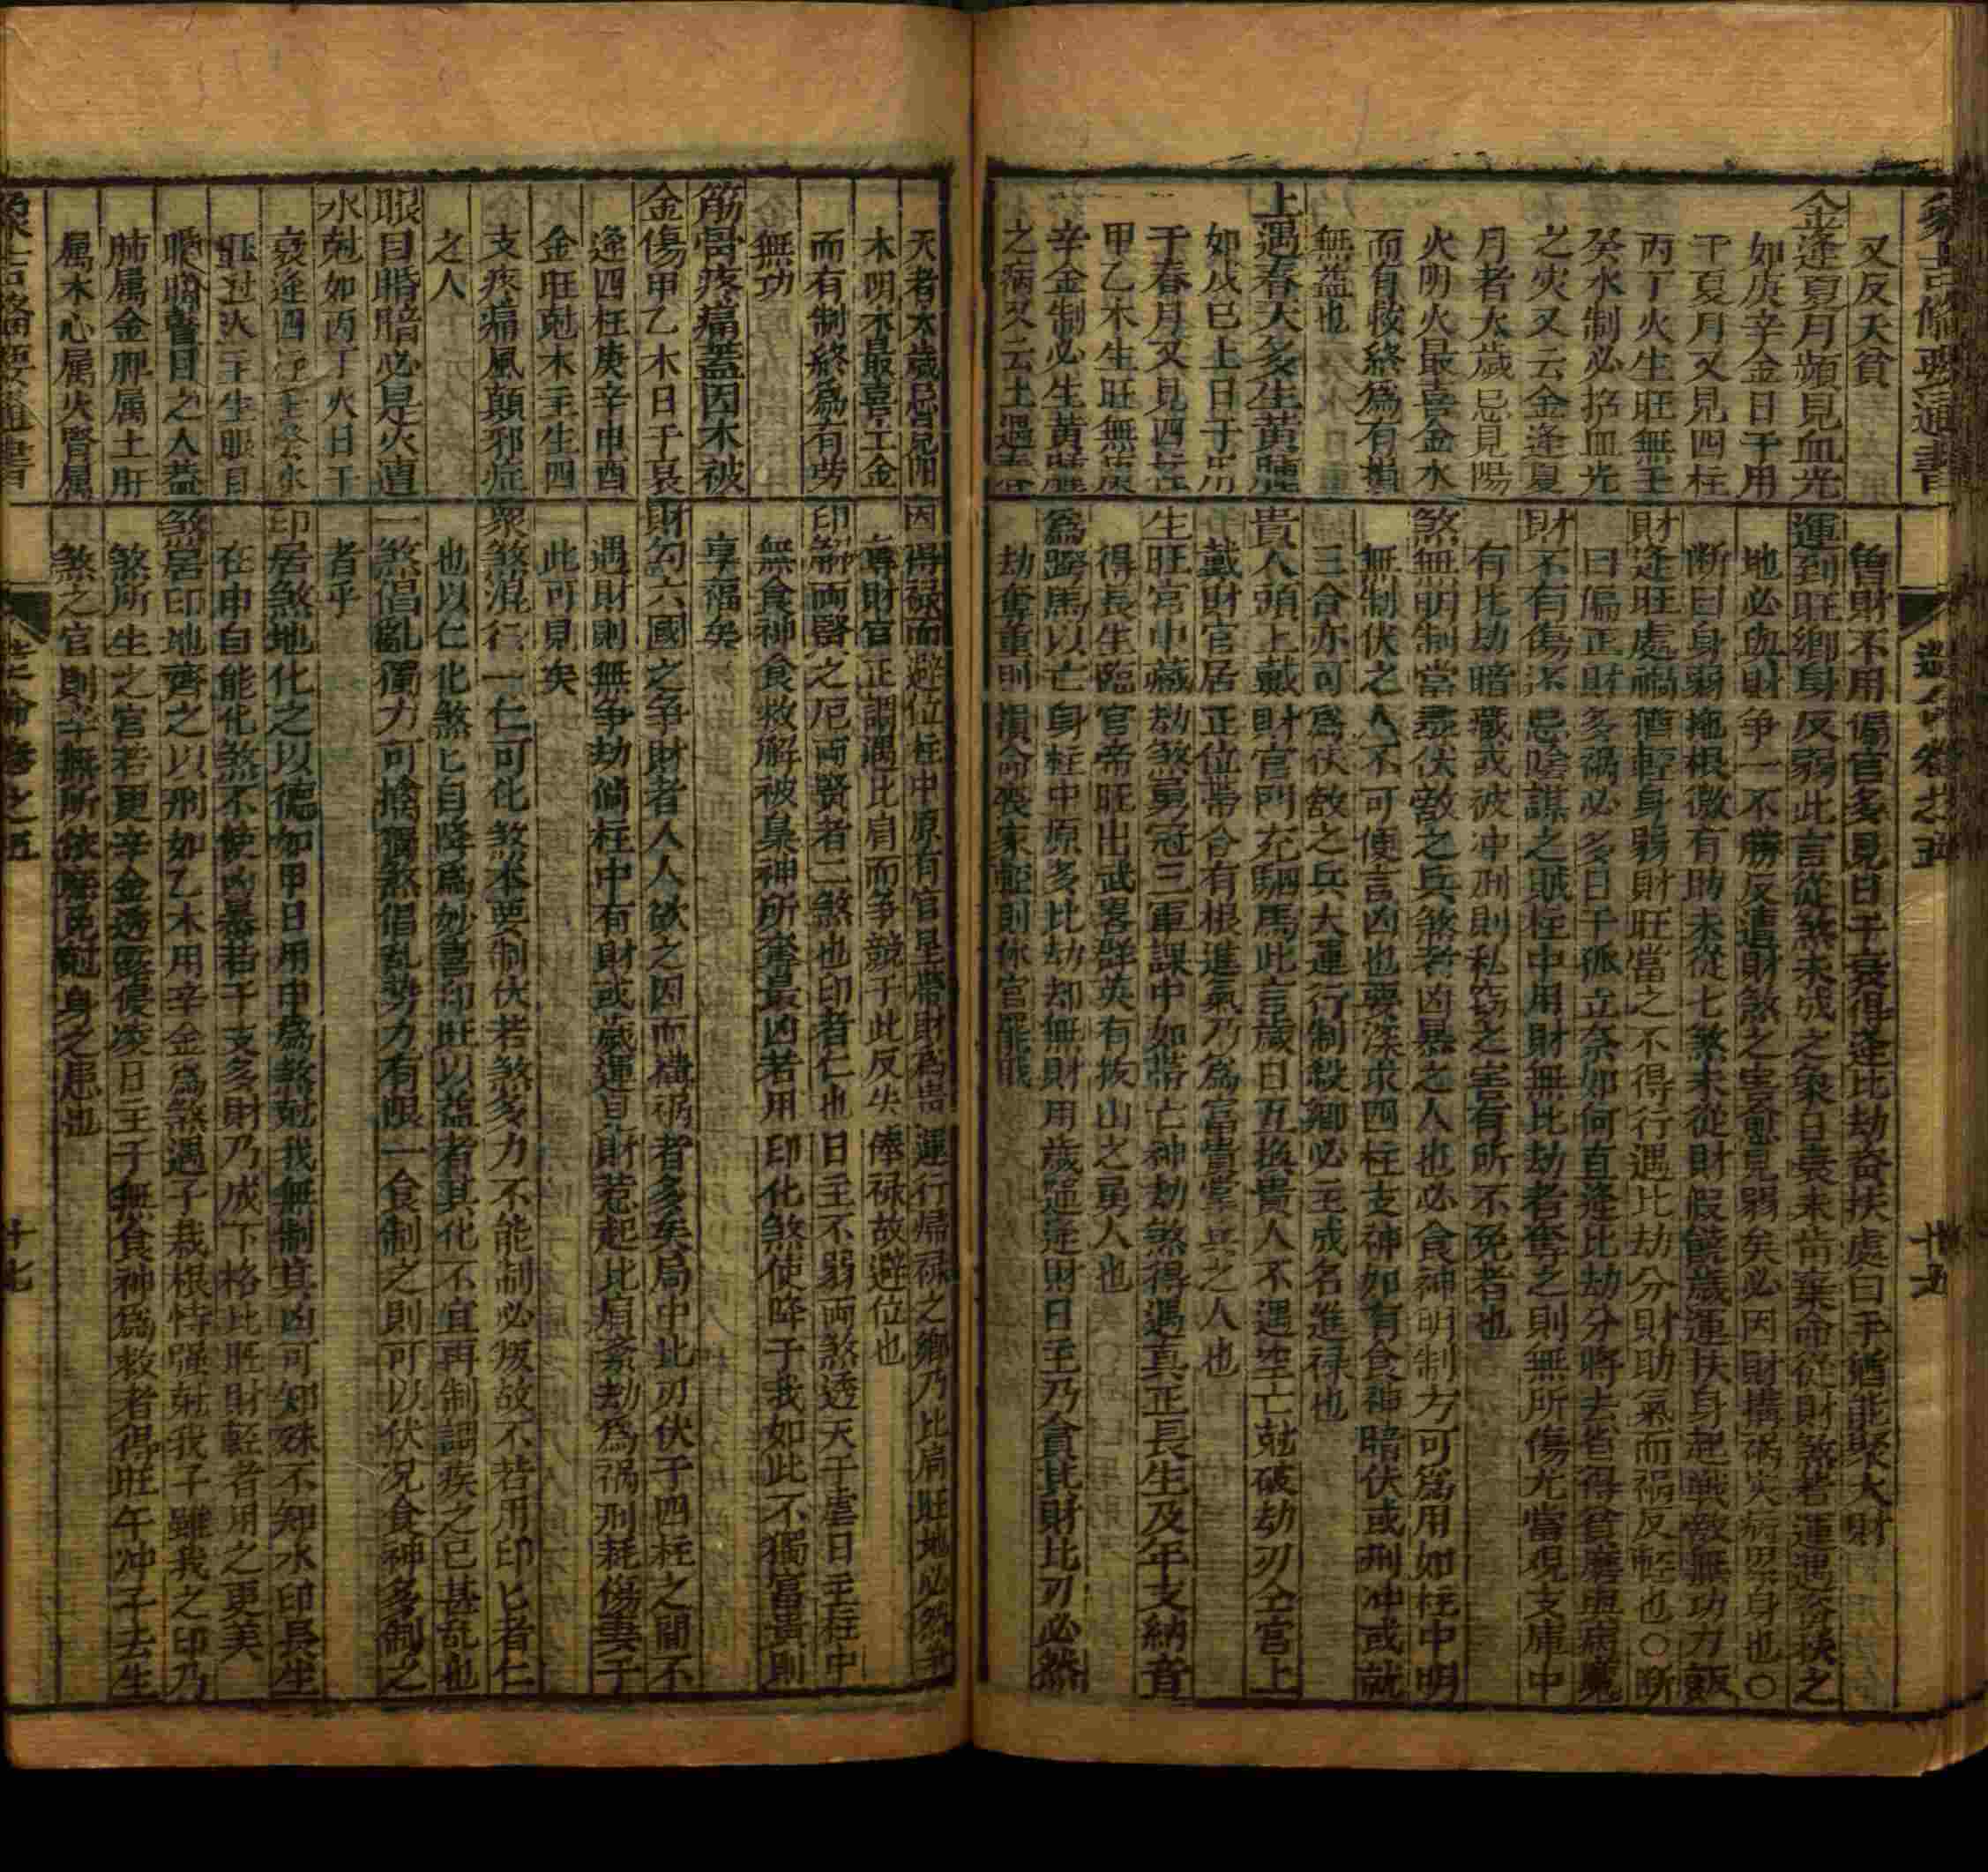 象吉備要通書
又反天貧
金逢夏月頻見血光
如庚辛金日干用
干夏月又見四柱
丙丁火生旺無壬
癸水制必招血光
之災又云金逢夏
月者太歲忌見陽
火明火最喜金水
而有救終為有損
無益也
土遇春天多生黃腫
如戊巳土日干
于春月又見四柱
甲乙木生旺無庚
辛金制必生黃腫
之病又云土遇春
天者太歲忌見陽
木明木最喜
而有制終為有勞
無功
筋骨疼痛蓋因木被
金傷甲乙木日干衰
逢四柱庚辛申酉
金旺尅木主生四
支疾痛風顛邪症
之人
眼目昏暗必是火遭
水尅如丙丁火日干
衰逢四柱壬癸水
旺尅火主生眼目
之人益
肺屬金脾属土肝
属木心属火腎属
卷之五
魯財不用偏官多見日干衰得逢比劫奋扶處曰干猶能聚大財
運到旺鄉身反弱此言從煞未成之象日衰未肯棄命從財煞者運遇奋扶之
地必與財争一不勝反遭財煞之害愈見弱矣必因財搆禍災病罗身也〇
断曰身弱拖根微有助未從七煞未從財假饒歲運扶身起戦敵無功力
財逢旺處禍猶輕身弱財旺當之不得行遇比劫分財助氣而禍反輕也〇断
曰偏正財多禍必多日干孤立奈如何直逢比劫分將去省得貧磨與病魔
財不有傷忌陰謀之賊柱中用財無比劫者奪之則無所傷尤當視支庫中
有比劫暗藏或被冲刑則私窃之害有所不免者也
煞無明制當尋伏敵之兵煞者凶暴之人也必食神明制方可為用如柱中明
無制伏之人不可便言凶也要深求四柱支神如有食神暗伏或刑冲或就
三合亦可為伏敵之兵大運行制殺鄉必主成名進禄也
貴人頭上戴財官門充駟馬此言歲日五換貴人不遇空亡尅破劫刃全官上
戴財官居正位帶合有根進氣乃為富貴掌兵之人也
生旺宮中藏劫煞勇冠三軍謀中如帶亡神劫煞得遇真正長生及年支納音
得長生臨官帝旺出武畧群英有拔山之勇人也
為躋馬以亡身柱中原多比劫却無財用歲運逢財日主乃貪其財比刃必然
劫奪重則損命喪家輕則休官罷戢
因得禄而避位柱中原有官星帶財為貴運行帰禄之鄉乃比肩旺地必然
財官正謂遇比肩而争競于此反失俸禄故避位也
印解兩賢之厄兩賢者二煞也印者仁也日主不弱兩煞透天干虐日主柱中
無食神食救解被梟神所奪最凶若用印化煞使降于我如此不獨富貴則
享福矣
財勾六國之争財者人人欲之因而搆禍者多矣局中比刃伏于四柱之間不
遇財則無争劫倘柱中有財或歲運見財惹起比肩紊劫為禍刑耗傷妻子
此可見矣
衆煞混行一仁可化煞本要制伏若煞多力不能制必叛故不若用印匕者仁
也以仁化煞匕自降為妙喜印旺以益者其化不宜再制謂疾之已甚乱也
一煞倡亂獨力可擒獨煞倡乱勢力有限一食制之則可以伏况食神多制之
者乎
印居煞地化之以德如甲日用申為煞尅我無制真凶可知殊不知水印長生
在申自能化煞不使凶暴若干支多財乃成下格比旺財輕者用之更美
煞居印地齊之以刑如乙木用辛金為煞遇子栽根恃强尅我子雖我之印乃
煞所生之官若更辛金透露侵凌日主于無食神為救者得旺午冲子去生
煞之官則辛無所依庶免尅身之患也
卷之五
十七